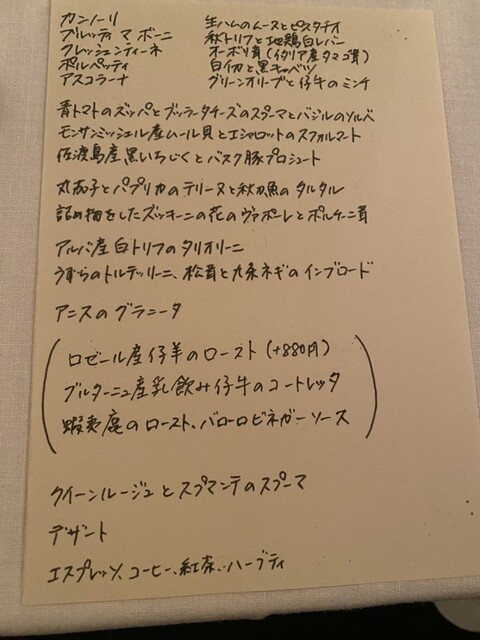 カンノーリ 生ハムのムースとピスタチオ
ブルッティ マ ボーニ 秋トリフと地鶏白レバー
クレッシェンティーネ オーボリ茸(イタリア産タマゴ茸)
ポルペッティ 白イカと黒キャベツ
アスコラーナ グリーンオリーブと仔牛のミンチ
青トマトのズッパとブッラータチーズのスプーマとバジルのソルベ
モンサンミッシェル産ムール貝とエシャロットのスフォルマート
佐渡島産黒いちじくとバスク豚プロシュート
丸茄子とパプリカのテリーヌと秋刀魚のタルタル
詰め物をしたズッキーニの花のヴァポーレとポルチーニ茸
アルバ産白トリフのタリオリーニ
うずらのトルテッリーニ、松茸と九条ネギのインブロード
アニスのグラニータ
ロゼール産仔羊のロースト(+880円)
ブルターニュ産乳飲み仔牛のコートレッタ
蝦夷鹿のロースト、バローロビネガーソース
クイーンルージュとスプマンテのスプーマ
デザート
エスプレッソ、コーヒー、紅茶、ハーブティ